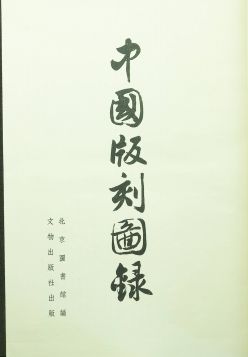 中國版刻圖録
北京圖書館編
文物出版社出版